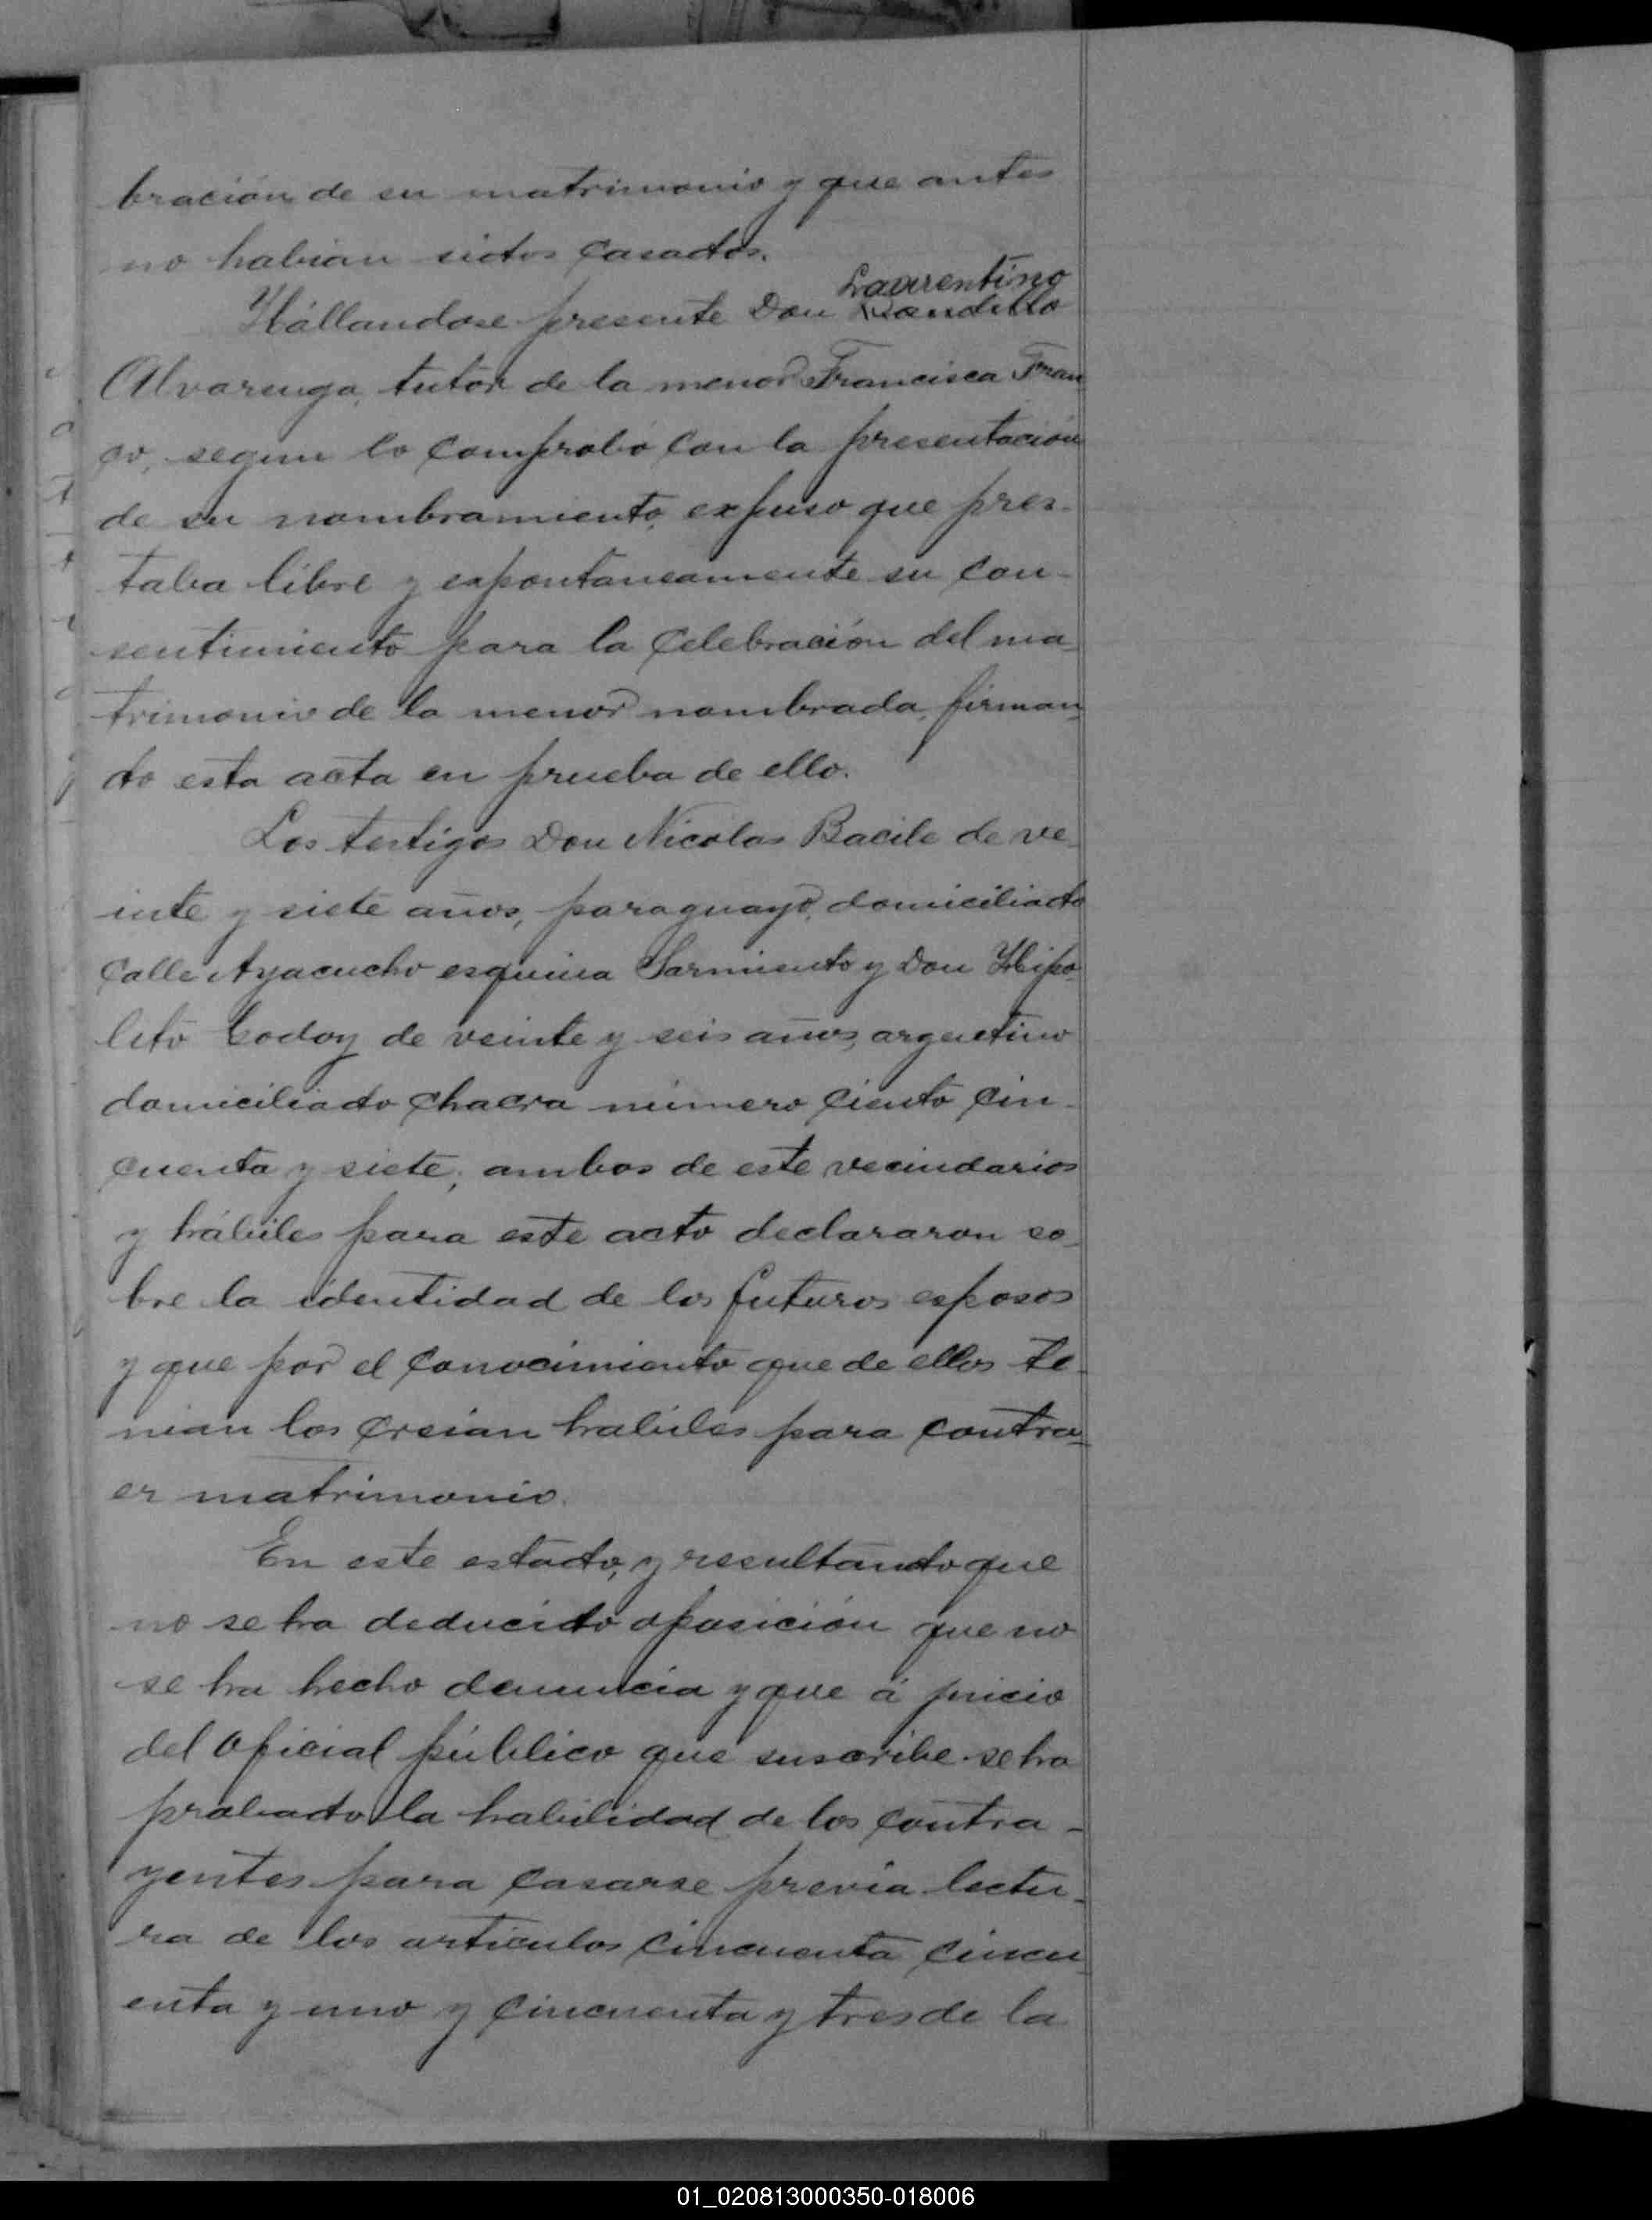 bración de su matrimonio y que antes
no habian sidos casados.
Laurentino
Hállandose presente Don
Alvarenga, tutor de la menor Francisca Fran
co, segun lo comprobó con la presentación
de su nombramiento, expuso que pres-
taba libre y espontaneamente su con-
sentimiento para la celebración del ma-
trimonio de la menor nombrada, firman-
do esta acta en prueba de ello.
Los testigos Don Nicolas Bacile de ve-
inte y siete años, paraguayo, domiciliado
calle Ayacucho esquina Sarmiento y Don Hipo-
lito Godoy de veinte y seis años, argentino
domiciliado chacra número ciento cin-
cuenta y siete; ambos de este vecindarios
y hábiles para este acto declararon so-
bre la identidad de los futuros esposos
y que por el conocimiento que de ellos te-
nian los creian habiles para contra-
er matrimonio.
En este estado, y resultando que
no se ha deducido oposición que no
se ha hecho denuncia y que á juicio
del oficial público que suscribe se ha
probado la habilidad de los contra-
yentes para casarse previa lectu-
ra de los articulos cincuenta cincu-
enta y uno y cincuenta y tres de la
01_020813000350-018006